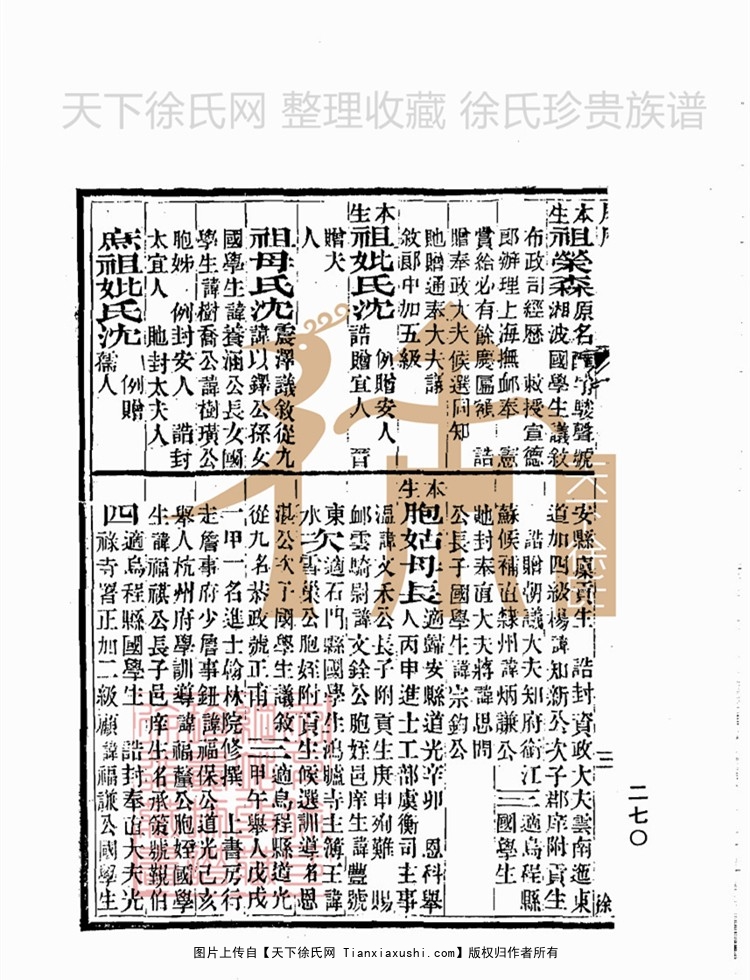 天下徐氏网 整理收藏 徐氏珍贵族谱
本生祖榮森 原名 字駿聲號
湘波國學生議敘
布政司經歷 敕授宣德
郎辦理上海撫卹奉 憲
賞給必有餘慶匾額 誥
贈奉政大夫候選同知
貤贈通奉大夫議
敘郎中加五級
本生祖妣氏沈 例贈安人 晉
誥贈宜人
贈夫
人
祖母氏沈 震澤議敘從九
諱以鐸公孫女
國學生諱養涵公長女國
學生諱樹喬公諱樹璜公
胞姊 例封安人 誥封
太宜人 貤封太夫人
庶祖妣氏沈 例贈
孺人
安縣廩貢生 誥封資政大夫雲南迤東
道加四級楊諱知新公次子郡庠附貢生
誥贈朝議大夫知府銜江
蘇候補直隸州諱炳謙公
三適烏程縣
國學生
貤封奉直大夫蔣諱思問
公長子國學生諱宗鈞公
本生胞姑母 長適歸安縣道光辛卯 恩科舉
人丙申進士工部虞衡司主事
溫諱文禾公長子附貢生庚申殉難 賜
卹雲騎尉諱文銓公胞姪邑庠生諱豐號
東
水
次適石門縣國學生鴻臚寺主簿王諱
雪巢公胞姪附貢生候選訓導名恩
湛公次子國學生議敘
從九名恭政號正甫
三適烏程縣道光
甲午舉人戊戌
一甲一名進士翰林院修撰 上書房行
走詹事府少詹事鈕諱福保公道光己亥
舉人杭州府學訓導諱福釐公胞姪國學
生諱福祺公長子邑庠生名承筞號覲伯
四適烏程縣國學生 誥封奉直大夫光
祿寺署正加二級顧諱福謙公國學生
三
徐
二七〇
徐
天下徐氏
图片上传自【天下徐氏网 Tianxiaxushi.com】版权归作者所有